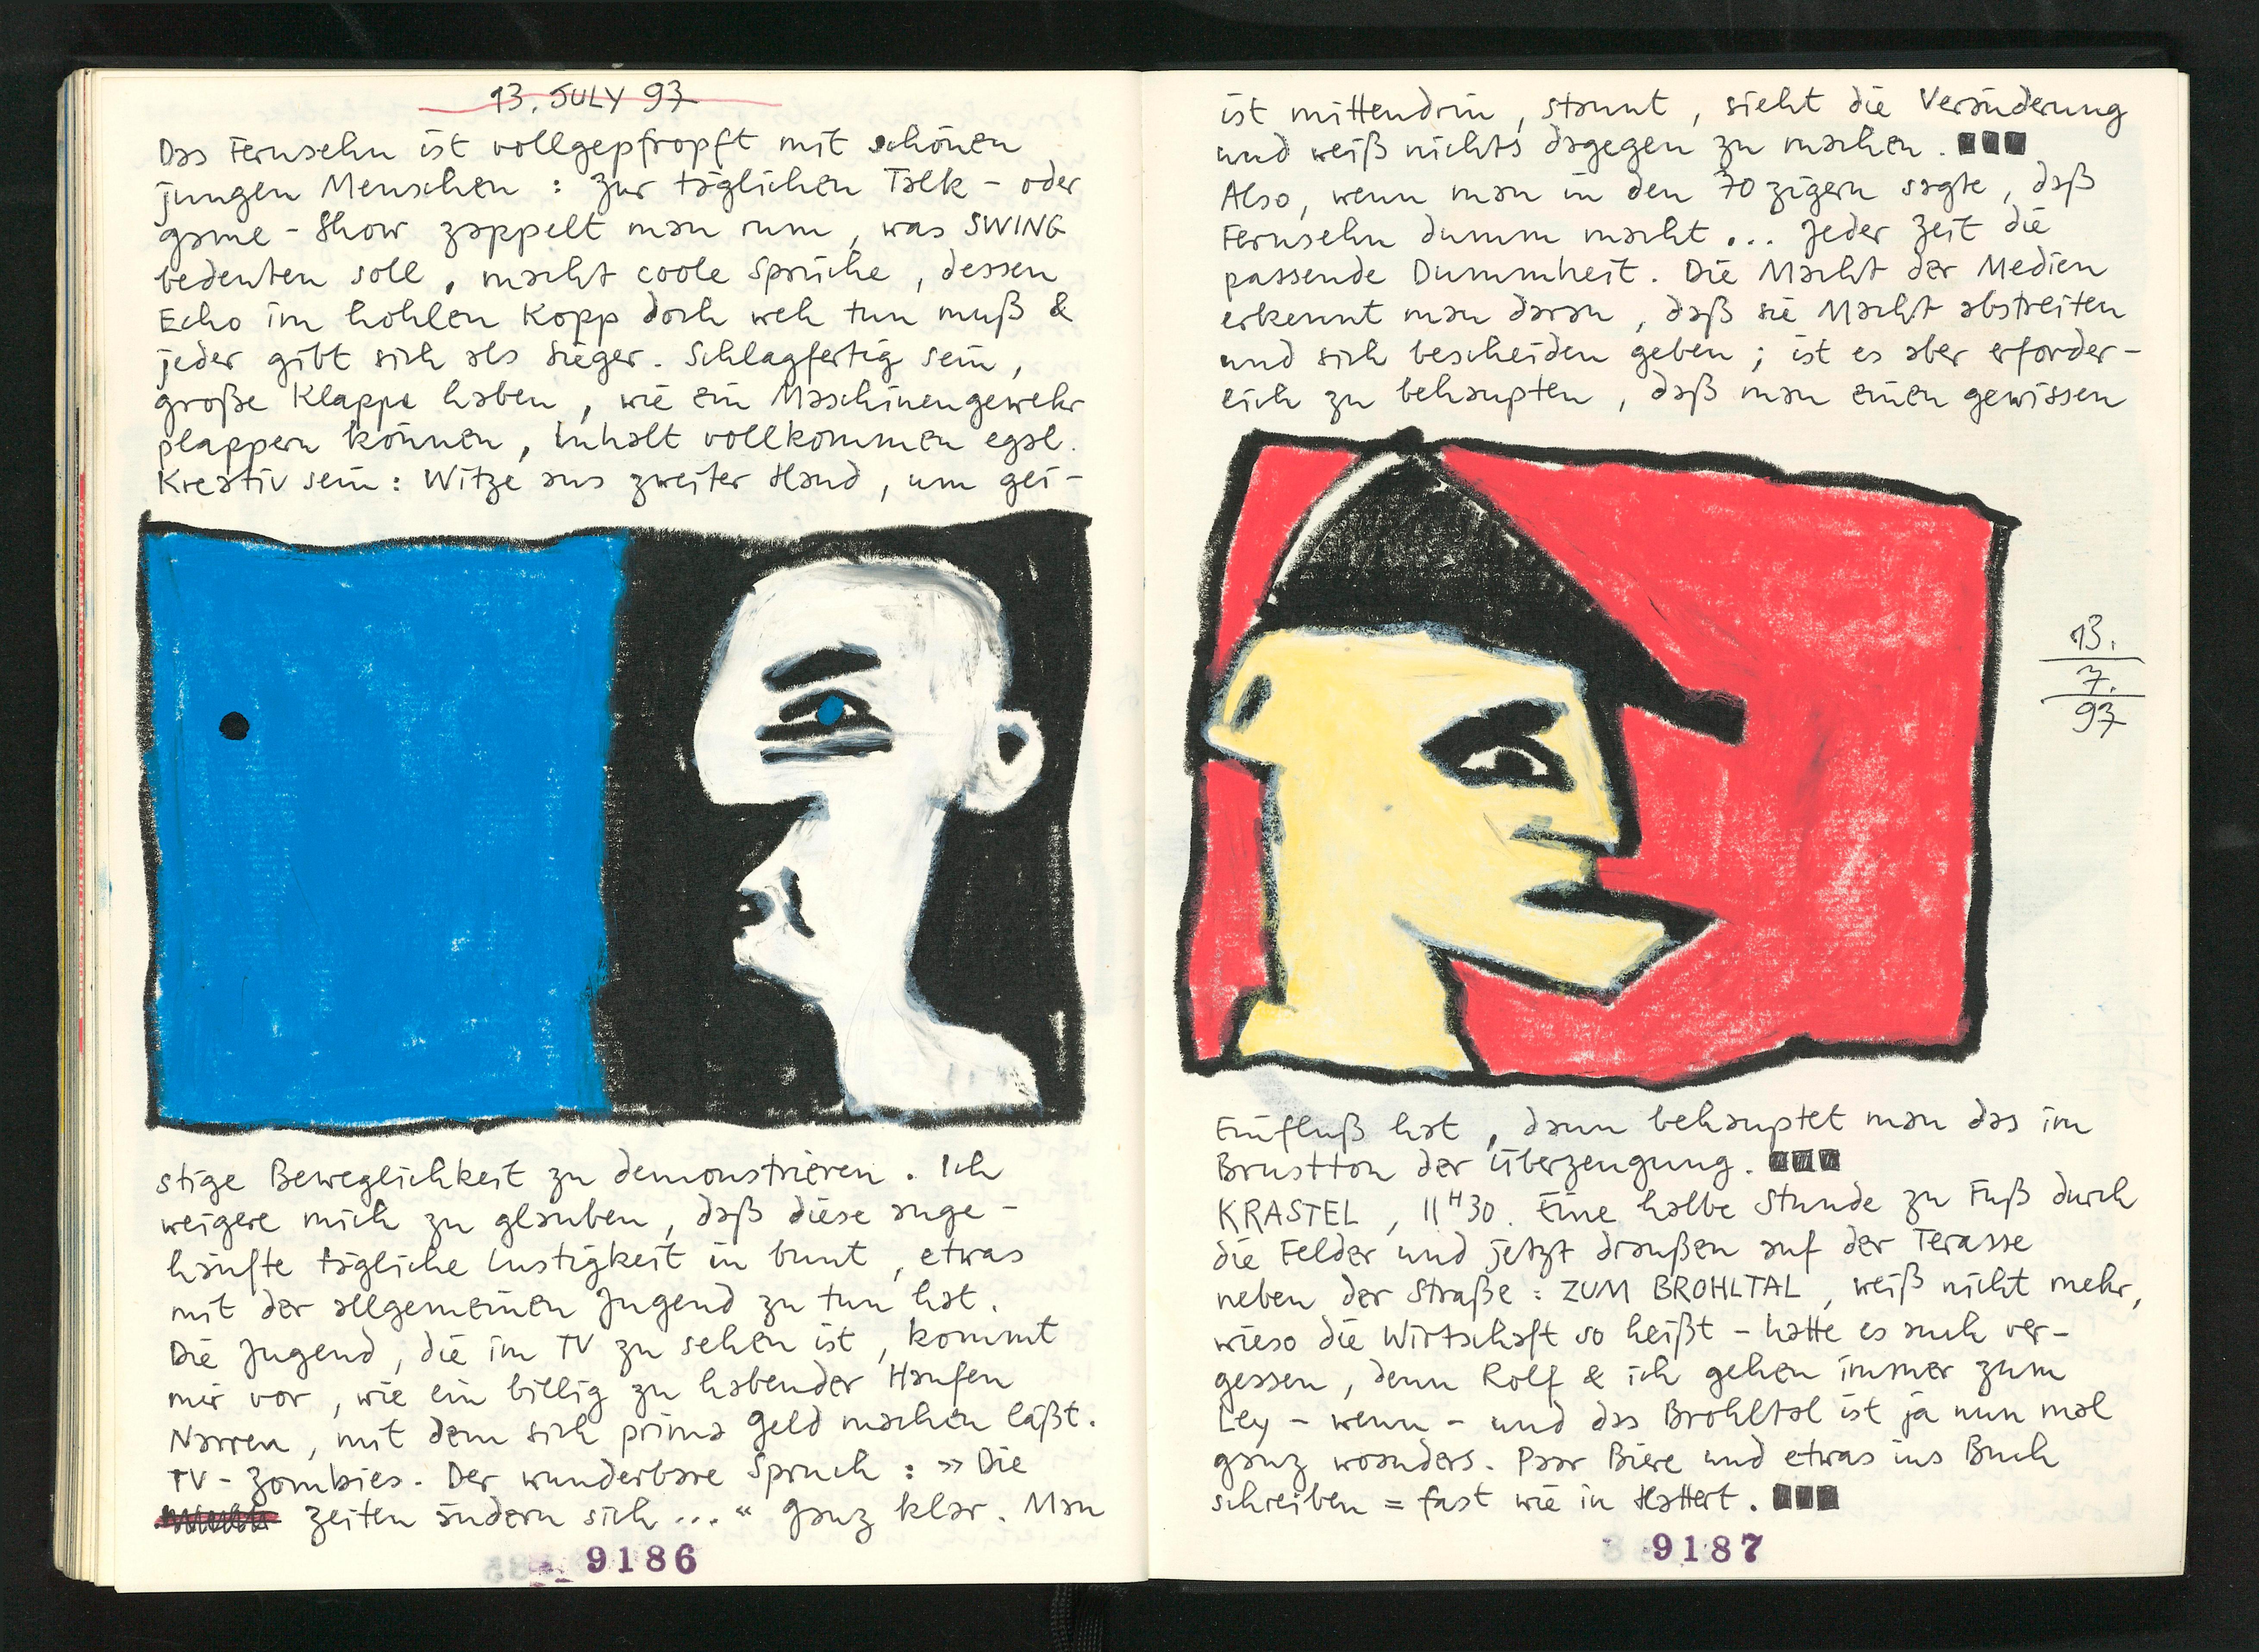 13. JULY 93
Das Fernsehn ist vollgepfropft mit schönen
jungen Menschen : zur täglichen Talk - oder
game - Show zappelt man rum, was SWING
bedeuten soll, macht coole Sprüche, dessen
Echo im hohlen Kopp doch weh tun muß &
jeder gibt sich als Sieger. Schlagfertig sein,
große Klappe haben, wie ein Maschinengewehr
plappern können, Inhalt vollkommen egal.
Kreativ sein : Witze aus zweiter Hand, um gei-
stige Beweglichkeit zu demonstrieren. Ich
weigere mich zu glauben, daß diese ange-
häufte tägliche Lustigkeit in bunt, etwas
mit der allgemeinen Jugend zu tun hat.
Die Jugend, die im TV zu sehen ist, kommt
mir vor, wie ein billig zu habender Haufen
Narren, mit dem sich prima Geld machen läßt.
TV - Zombies. Der wunderbare Spruch : » Die
Zeiten ändern sich ... “ ganz klar. Man
9186
ist mittendrin, staunt, sieht die Veränderung
und weiß nichts dagegen zu machen.
Also, wenn man in den 70zigern sagte, daß
Fernsehn dumm macht ... Jeder Zeit die
passende Dummheit. Die Macht der Medien
erkennt man daran, daß sie Macht abstreiten
und sich bescheiden geben ; ist es aber erforder-
lich zu behaupten, daß man einen gewissen
13.
7.
93
Einfluß hat, dann behauptet man das im
Brustton der Überzeugung.
KRASTEL, 11H30. Eine halbe Stunde zu Fuß durch
die Felder und jetzt draußen auf der Terasse
neben der Straße : ZUM BROHLTAL, weiß nicht mehr,
wieso die Wirtschaft so heißt - hatte es auch ver-
gessen, denn Rolf & ich gehen immer zum
Ley - wenn - und das Brohltal ist ja nun mal
ganz woanders. Paar Biere und etwas ins Buch
schreiben = fast wie in Hattert.
9187